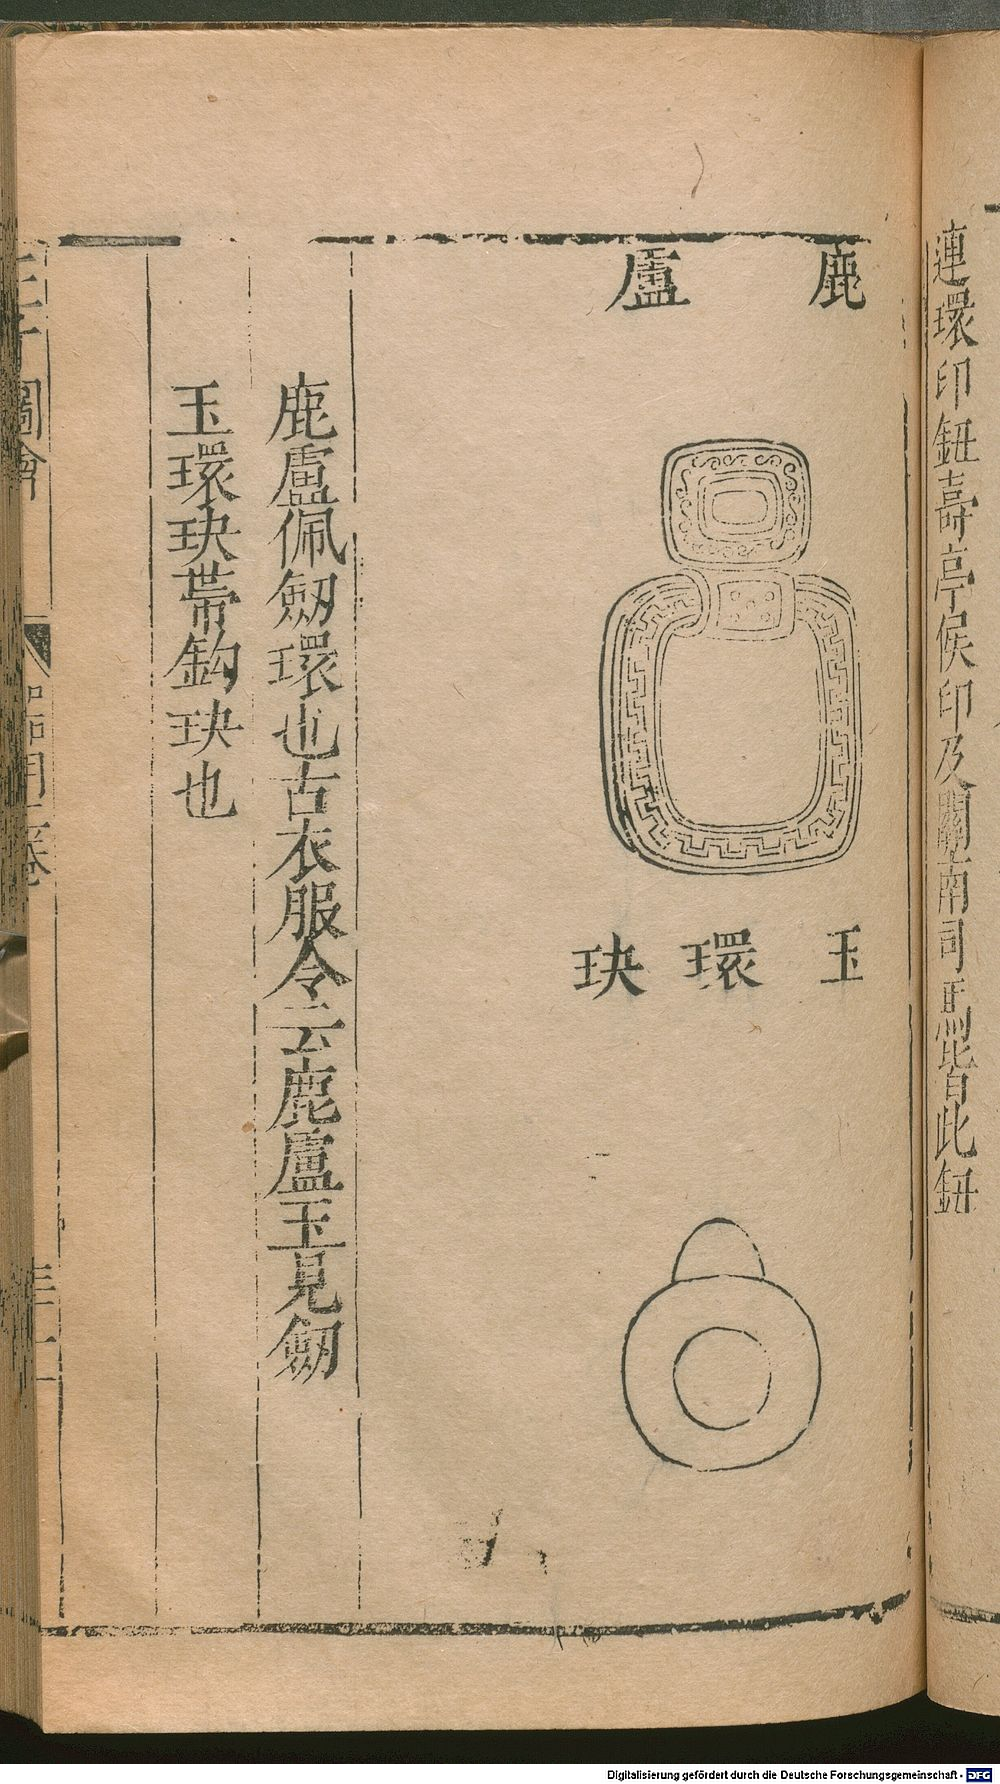 連環印鈕壽亭侯印及關南司馬皆此鈕
鹿盧
玉環玦
鹿盧佩劒環也古衣服令云鹿盧玉見劒
玉環玦帯鈎玦也
圖會
Digitalisierung gefördert durch die Deutsche Forschungsgemeinschaft - DFG